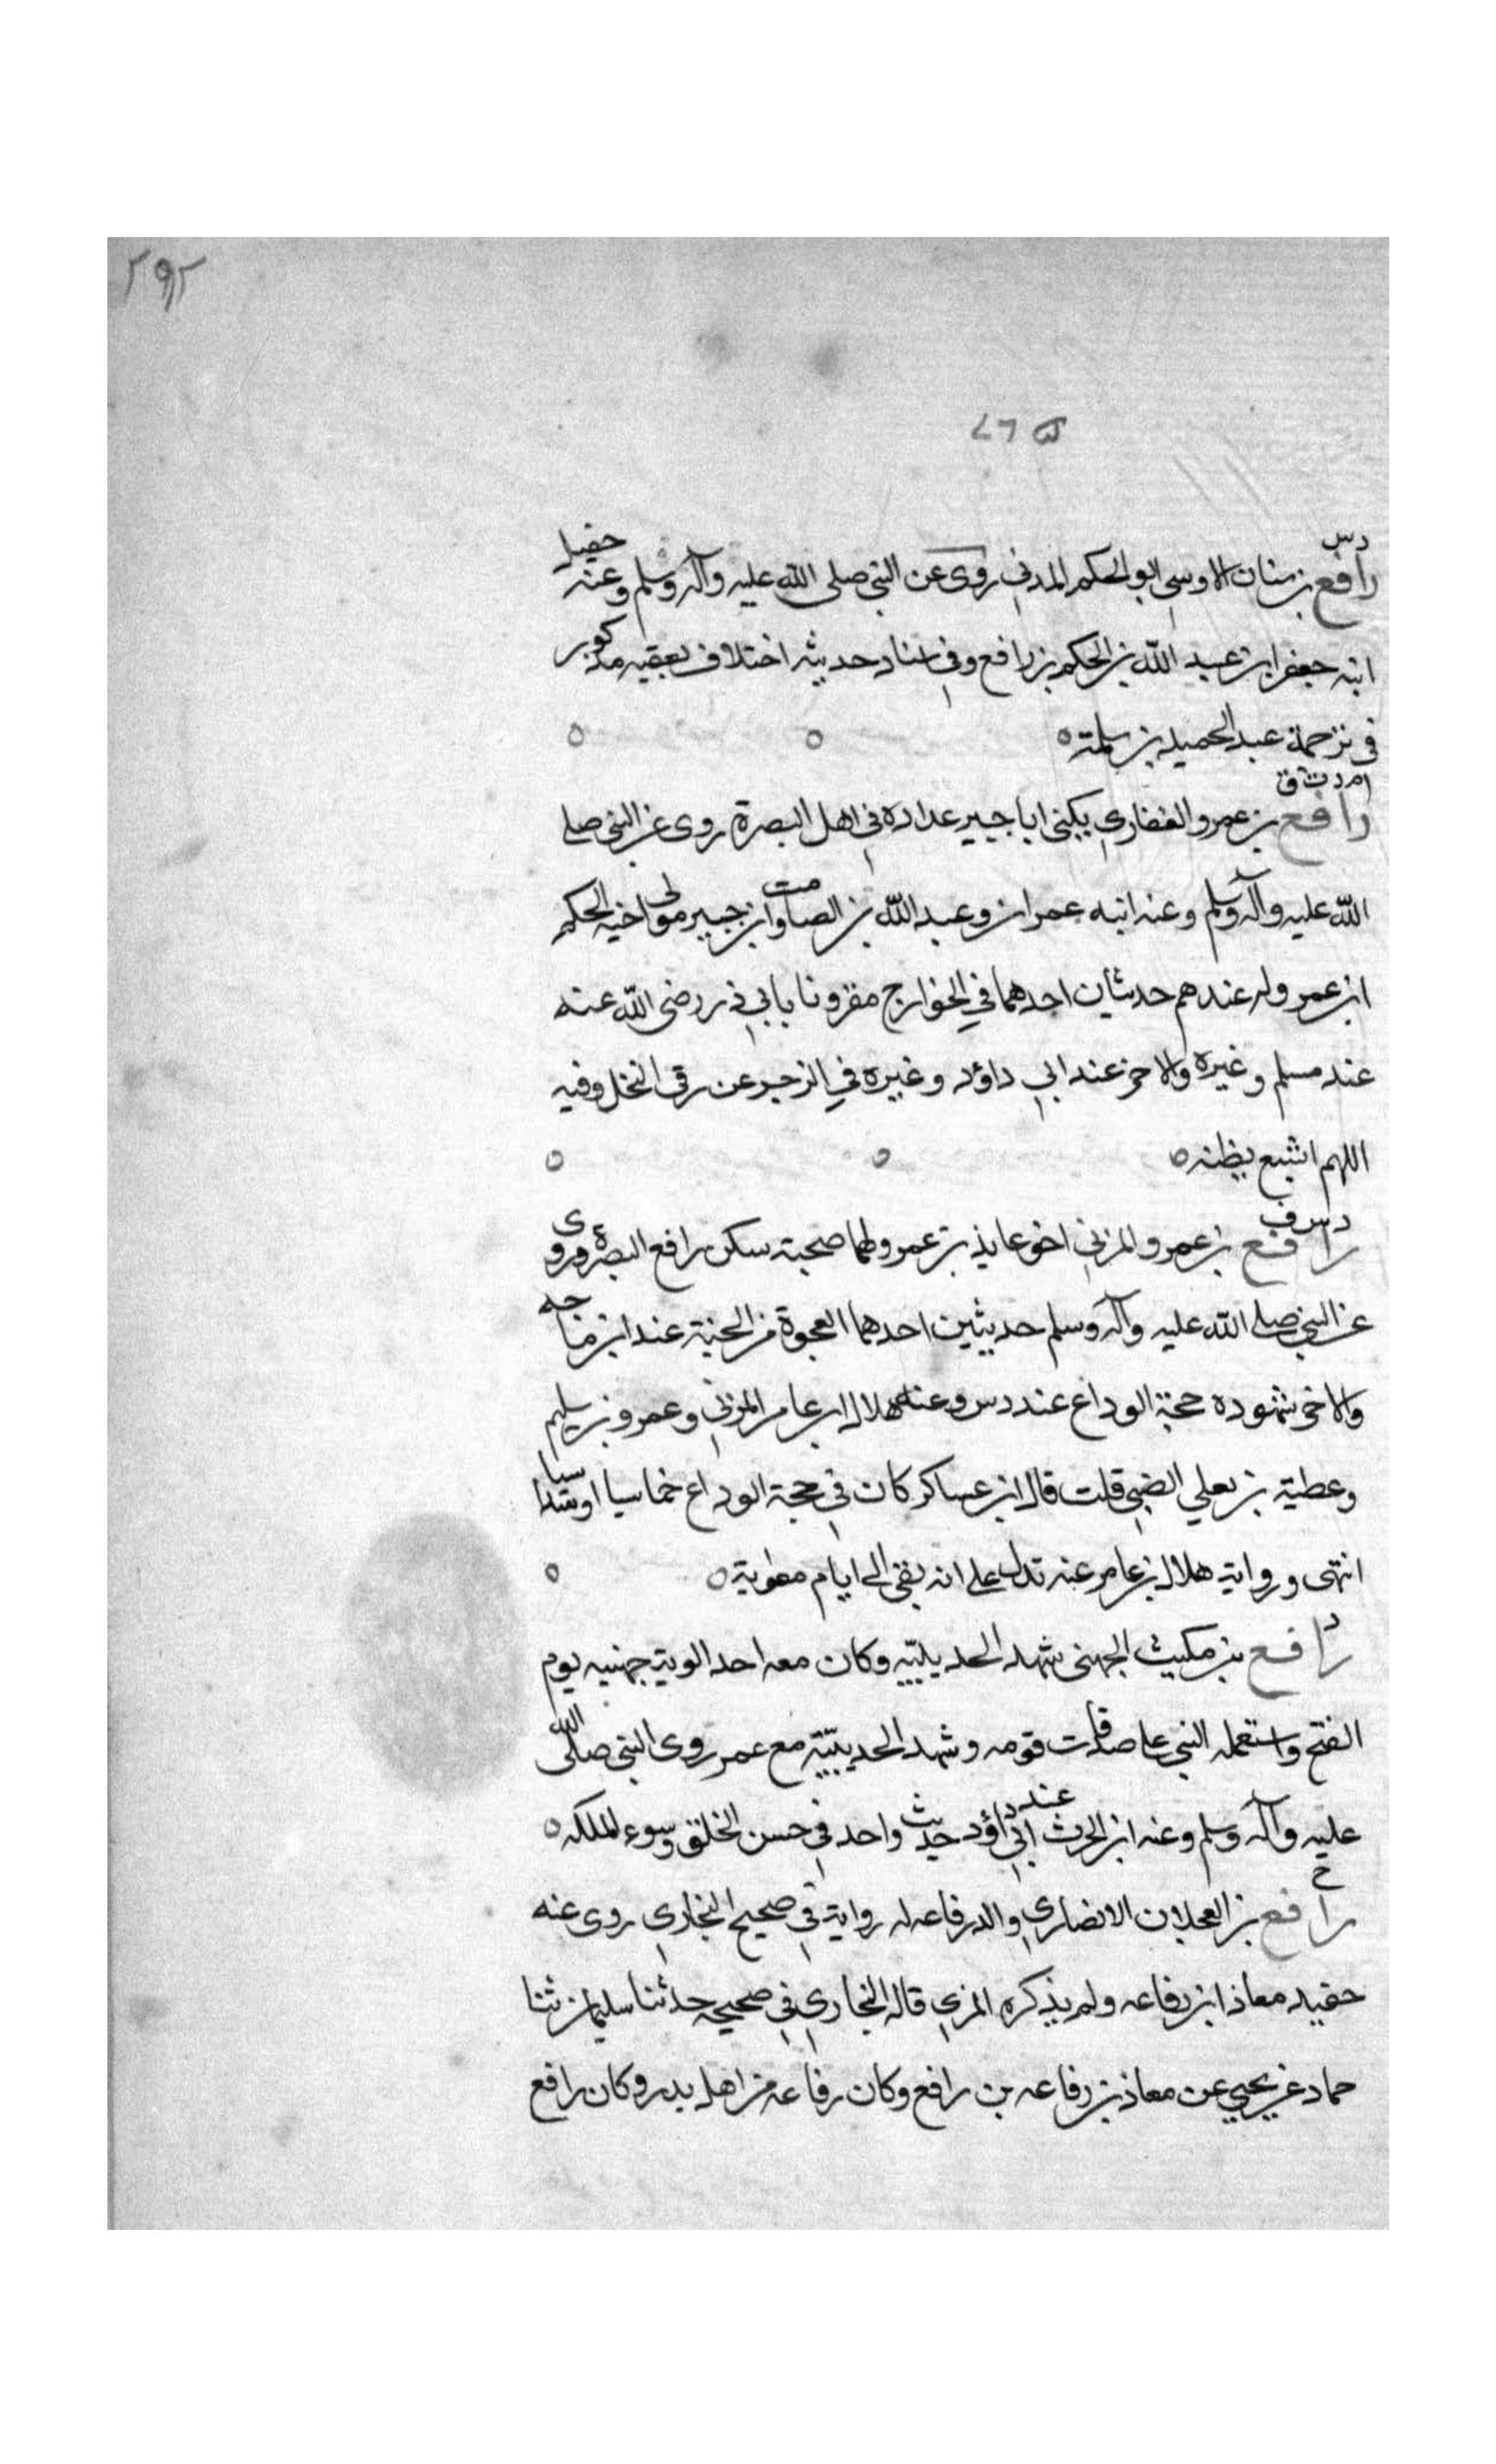 ٢٩٢
دس
رافع بن سنان الاوسى ابو الحكم المدني روى عن النبي صلى الله عليه وآله وسلم وعنه حفيد
ابنه جعفر ابن عبد الله بن الحكم بن رافع وفي اسناد حديثه اختلاف بعضه مذكور
في ترجمة عبد الحميد بن سلمة
م د ت ق
رافع بن عمرو الغفاري يكنى ابا جبير عداده في اهل البصرة روى عن النبي صلى
الله عليه وآله وسلم وعنه ابنه عمران وعبد الله بن الصامت وابن جبير مولى اخيه الحكم
ابن عمرو له عندهم حديثان احدهما في الخوارج مقرونا بابي ذر رضى الله عنه
عند مسلم وغيره والاخر عند ابي داؤد وغيره في الزجر عن رقى النخل وفيه
اللهم اشبع بطنه
دس ق
رافع بن عمرو المزني اخو عايذ بن عمرو لهما صحبة سكن رافع البصرة وروى
عن النبي صلى الله عليه وآله وسلم حديثين احدهما العجوة من الجنة عند ابن ماجه
والاخر شهوده حجة الوداع عند دس وعنه هلال ابن عامر المزني وعمرو بن سليم
وعطية بن يعلي الضبي قلت قال ابن عساكر كان في حجة الوداع خماسيا او سداسيا
انتهى ورواية هلال بن عامر عنه تدل على انه بقي الى ايام معوية
د
رافع بن مكيث الجهني شهد الحديبية وكان معه احد الوية جهنيه يوم
الفتح واستعمله النبي على صدقات قومه وشهد الحديبية مع عمر روى النبي صلى الله
عليه وآله وسلم وعنه ابن الحرث عند ابي داؤد حديث واحد في حسن الخلق وسوء الملكه
خ
رافع بن العجلان الانصاري والد رفاعه له رواية في صحيح البخاري روى عنه
حفيده معاذ ابن رفاعه ولم يذكره المزي قال البخاري في صحيحه حدثنا سليمان ثنا
حماد عن يحيى عن معاذ بن رفاعه بن رافع وكان رفاعه من اهل بدر وكان رافع